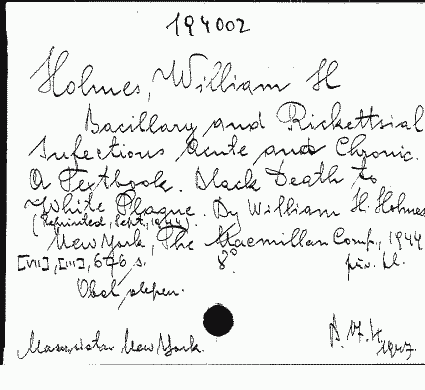 194002
Holmes, William H
Bacillary and Rickettsial
Infections Acute and Chronic.
A Textbook. Black Death to
White Plague. By William H. Holmes
(Reprinted, Sept., 1944)
New York, The Macmillan Comp., 1944
[VII], [III], 676 s. 8° pův. pl.
Obal slepen.
New York.
1947